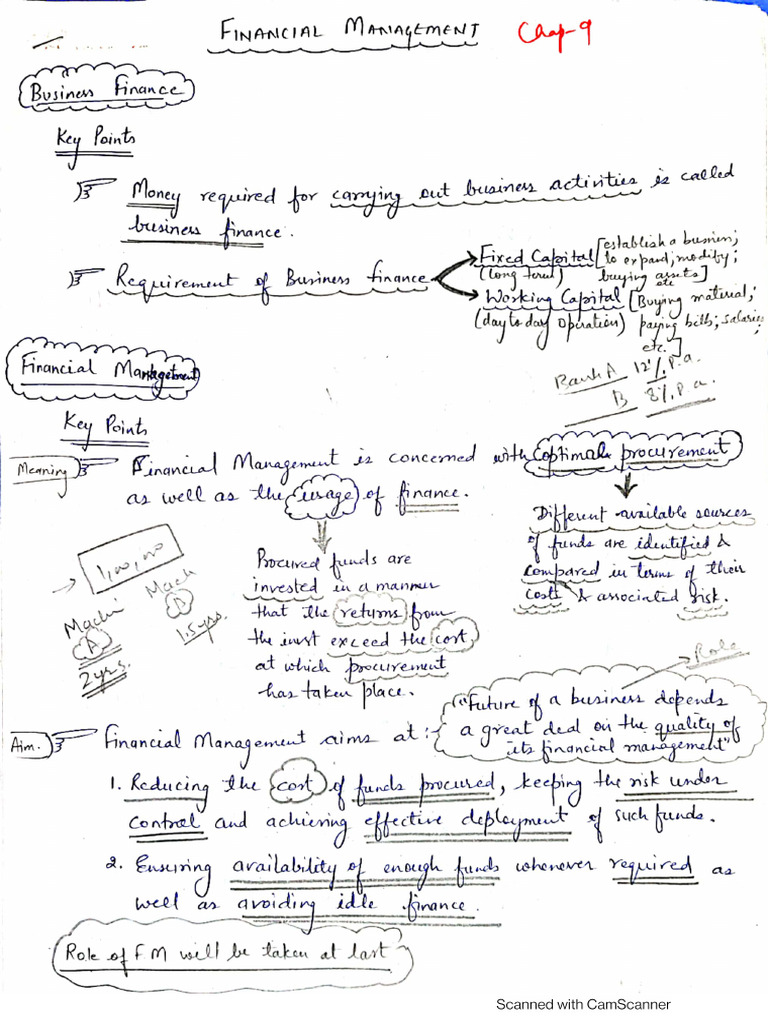 FINANCIAL MANAGEMENT Chap-9
Business Finance
Key Points
Money required for carrying out business activities is called
business finance.
Requirement of Business finance
Fixed Capital [establish a business;
(long term) to expand, modify;
buying assets]
etc
Working Capital [Buying material;
(day to day operation) paying bills; salaries
etc.]
Financial Management
Bank A 12% p.a.
B 8% p.a.
Key Points
Meaning
Financial Management is concerned with optimal procurement
as well as the usage of finance.
Different available sources
of funds are identified &
compared in terms of their
costs & associated risk.
Procured funds are
invested in a manner
that the returns from
the invst exceed the cost
at which procurement
has taken place.
1,00,000
Machi
A
2 yrs.
Mach
B
1.5 yrs.
Role
"Future of a business depends
a great deal on the quality of
its financial management"
Aim.
Financial Management aims at :-
1. Reducing the cost of funds procured, keeping the risk under
control and achieving effective deployment of such funds.
2. Ensuring availability of enough funds whenever required as
well as avoiding idle finance.
Role of F M will be taken at last
Scanned with CamScanner